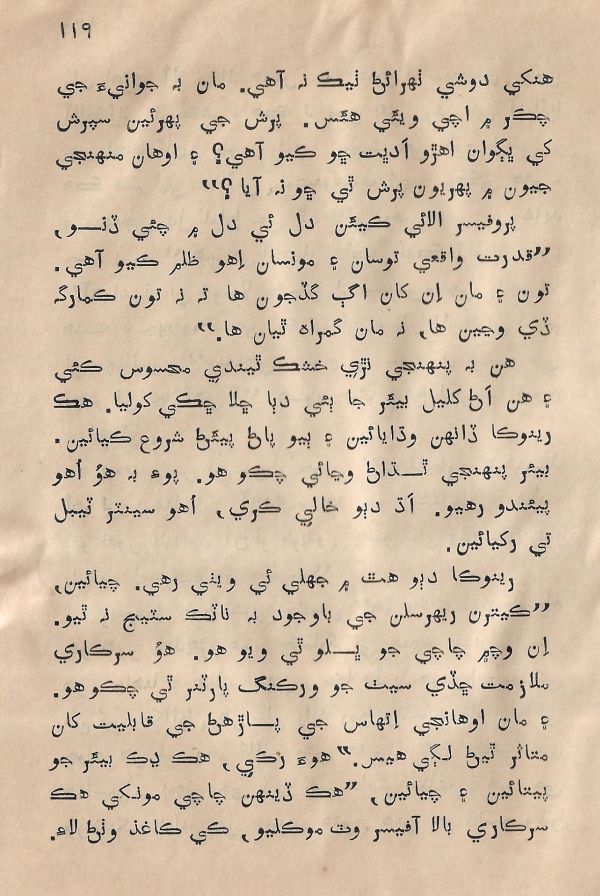 ١١٩
هنکي دوشي ٺهرائڻ ٺيڪ نہ آهي. مان بہ جوانيءَ جي
چڪر ۾ اچي ويئي هئس. پرش جي پهرئين سپرش
کي ڀڳوان اهڙو اَدڀت ڇو ڪيو آهي؟ ۽ اوهان منهنجي
جيون ۾ پهريون پرش ٿي ڇو نہ آيا؟“
پروفيسر الائي ڪيئن دل ئي دل ۾ چئي ڏنو,
”قدرت واقعي توسان ۽ مونسان اِهو ظلم ڪيو آهي.
تون ۽ مان اِن کان اڳ گڏجون ها تہ نہ تون ڪمارگہ
ڏي وڃين ها, نہ مان گمراه ٿيان ها.“
هن بہ پنهنجي نڙي خشڪ ٿيندي محسوس ڪئي
۽ هن اَڻ کليل بيئر جا ٻئي دٻا ڇلا ڇڪي کوليا. هڪ
رينوڪا ڏانهن وڌايائين ۽ ٻيو پاڻ پيئڻ شروع ڪيائين.
بيئر پنهنجي ٿڌاڻ وڃائي چڪو هو. پوءِ بہ هوُ اُهو
پيئندو رهيو. اَڌ دٻو خالي ڪري, اُهو سينٽر ٽيبل
تي رکيائين.
رينوڪا دٻو هٿ ۾ جهلي ئي ويٺي رهي. چيائين,
”ڪيترن ريهرسلن جي باوجود بہ ناٽڪ سٽيج نہ ٿيو.
اِن وچ۾ چاچي جو ڀلو ٿي ويو هو. هوُ سرڪاري
ملازمت ڇڏي سيٺ جو ورڪنگ پارٽنر ٿي چڪو هو.
۽ مان اوهانجي اِتهاس جي پاڙهڻ جي قابليت کان
متاثر ٿيڻ لڳي هيس.“ هوءَ رڪي, هڪ ڍڪ بيئر جو
پيتائين ۽ چيائين, ”هڪ ڏينهن چاچي مونکي هڪ
سرڪاري بالا آفيسر وٽ موڪليو, کي ڪاغذ وٺڻ لاءِ.